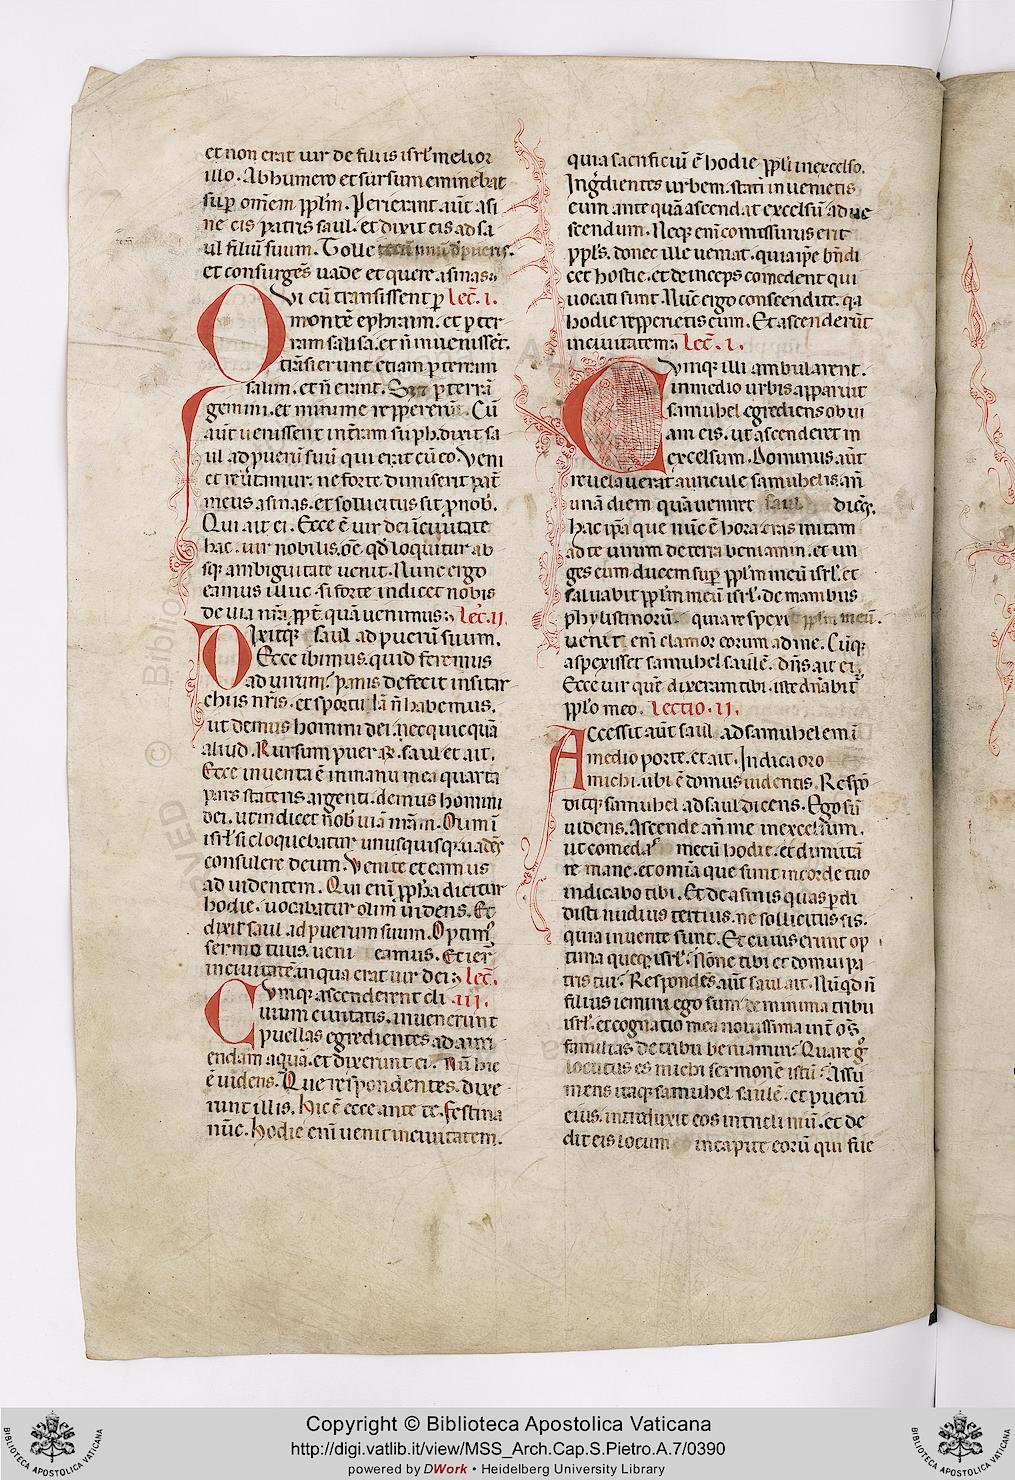 et non erat uir de filiis isrl melior
illo. Ab humero et sursum eminebat
sup omnem pplm. Perierant aut asi
ne cis patris saul. et dixit cis ad sa
ul filiu suum. Tolle tecu unu d pueris.
et consurges uade et quere asinas
Qvi cu transissent p Lec. i.
monte ephraim. et p ter-
ram salisa. et n inuenissent.
transierunt etiam p terram
salim. et n erant. Set p terra
gemini. et minime repperenit. Cu
aut uenissent in tram suph. dixit sa
ul ad pueru suu qui erat cu eo. Veni
et reutamur. ne forte dimiserit pat
meus asinas. et sollicitus sit p nob.
Qui ait ei. Ecce e uir dei i ciuitate
hac. uir nobilis. oe qd loquitur ab
sq ambiguitate uenit. Nunc ergo
eamus illuc. si forte indicet nobis
de uia nra ppt qua uenimus. Lec. ii.
Dixitq saul ad pueru suum.
Ecce ibimus. quid feremus
ad uirum? panis defecit in sitar-
chiis nris. et sportula n habemus.
ut demus homini dei. nec quicqua
aliud. Rursum puer R. saul et ait.
Ecce inuenta e in manu mea quarta
pars stateris argenti. demus homini
dei. ut indicet nob uia nram. Olim i
isrl sic loquebatur unusquisq. uades
consulere deum. Venite et eamus
ad uidentem. Qui eni ppha dicitur
hodie. uocabatur olim uidens. Et
dixit saul ad puerum suum. Optim
sermo tuus. ueni eamus. Et ier
in ciuitate in qua erat uir dei. Lec.
Cvmq ascenderent cli .iii.
uum ciuitatis. inuenerunt
puellas egredientes ad auri
endam aqua. et dixerunt ei. Nu hic
e uidens. Que respondentes. dixe-
runt illis. Hic e ecce ante te. festina
nuc. Hodie eni uenit in ciuitatem.
quia sacrificiu e hodie ppli in excelso.
Ingdientes urbem. stati inuenietis
eum ante qua ascendat excelsu ad ue
scendum. Neq eni comessurus erit
ppls. donec ille ueniat. quia ipe bndi
cet hostie. et deinceps comedent qui
uocati sunt. Nuc ergo conscendite. qa
hodie repperietis eum. Et ascenderut
in ciuitatem. Lec. i.
Cvmq illi ambularent.
in medio urbis apparuit
samuhel egrediens obui
am eis. ut ascenderet in
excelsum. Dominus aut
reuelauerat auricule samuhelis. an
una diem qua ueniret saul dices.
hac ipa que nuc e hora cras mitam
ad te uirum de terra beniamin. et un
ges eum ducem sup pplm meu isrl. et
saluabit pplm meu isrl. de manibus
phylistinoru. quia respexi pplm meu.
uenit eni clamor eorum ad me. Cuq
aspexisset samuhel saule. dns ait ei.
Ecce uir que dixeram tibi. iste dnabit
pplo meo. Lectio .ii.
Accessit aut saul ad samuhelem i
medio porte. et ait. Indica oro
michi. ubi e domus uidentis. Respo
ditq samuhel ad saul dicens. Ego su
uidens. Ascende an me in excelsum.
ut comedas mecu hodie. et dimitta
te mane. et omia que sunt in corde tuo
indicabo tibi. Et de asinis quas pdi
disti nudius tertius. ne sollicitus sis.
quia inuente sunt. Et cuius erunt op
tima queq isrl? None tibi et domui pa
tris tui? Respondes aut saul ait. Nuqd n
filius iemini ego sum de minima tribu
isrl. et cognatio mea nouissima int os
familias de tribu beniamin? Quare g
locutus es michi sermone istu? Assu
mens itaq samuhel saule. et pueru
eius. introduxit eos in tricliniu. et de
dit eis locum in caput eoru qui fue
Copyright © Biblioteca Apostolica Vaticana
http://digi.vatlib.it/view/MSS_Arch.Cap.S.Pietro.A.7/0390
powered by DWork • Heidelberg University Library
BIBLIOTECA APOSTOLICA VATICANA
BIBLIOTECA APOSTOLICA VATICANA